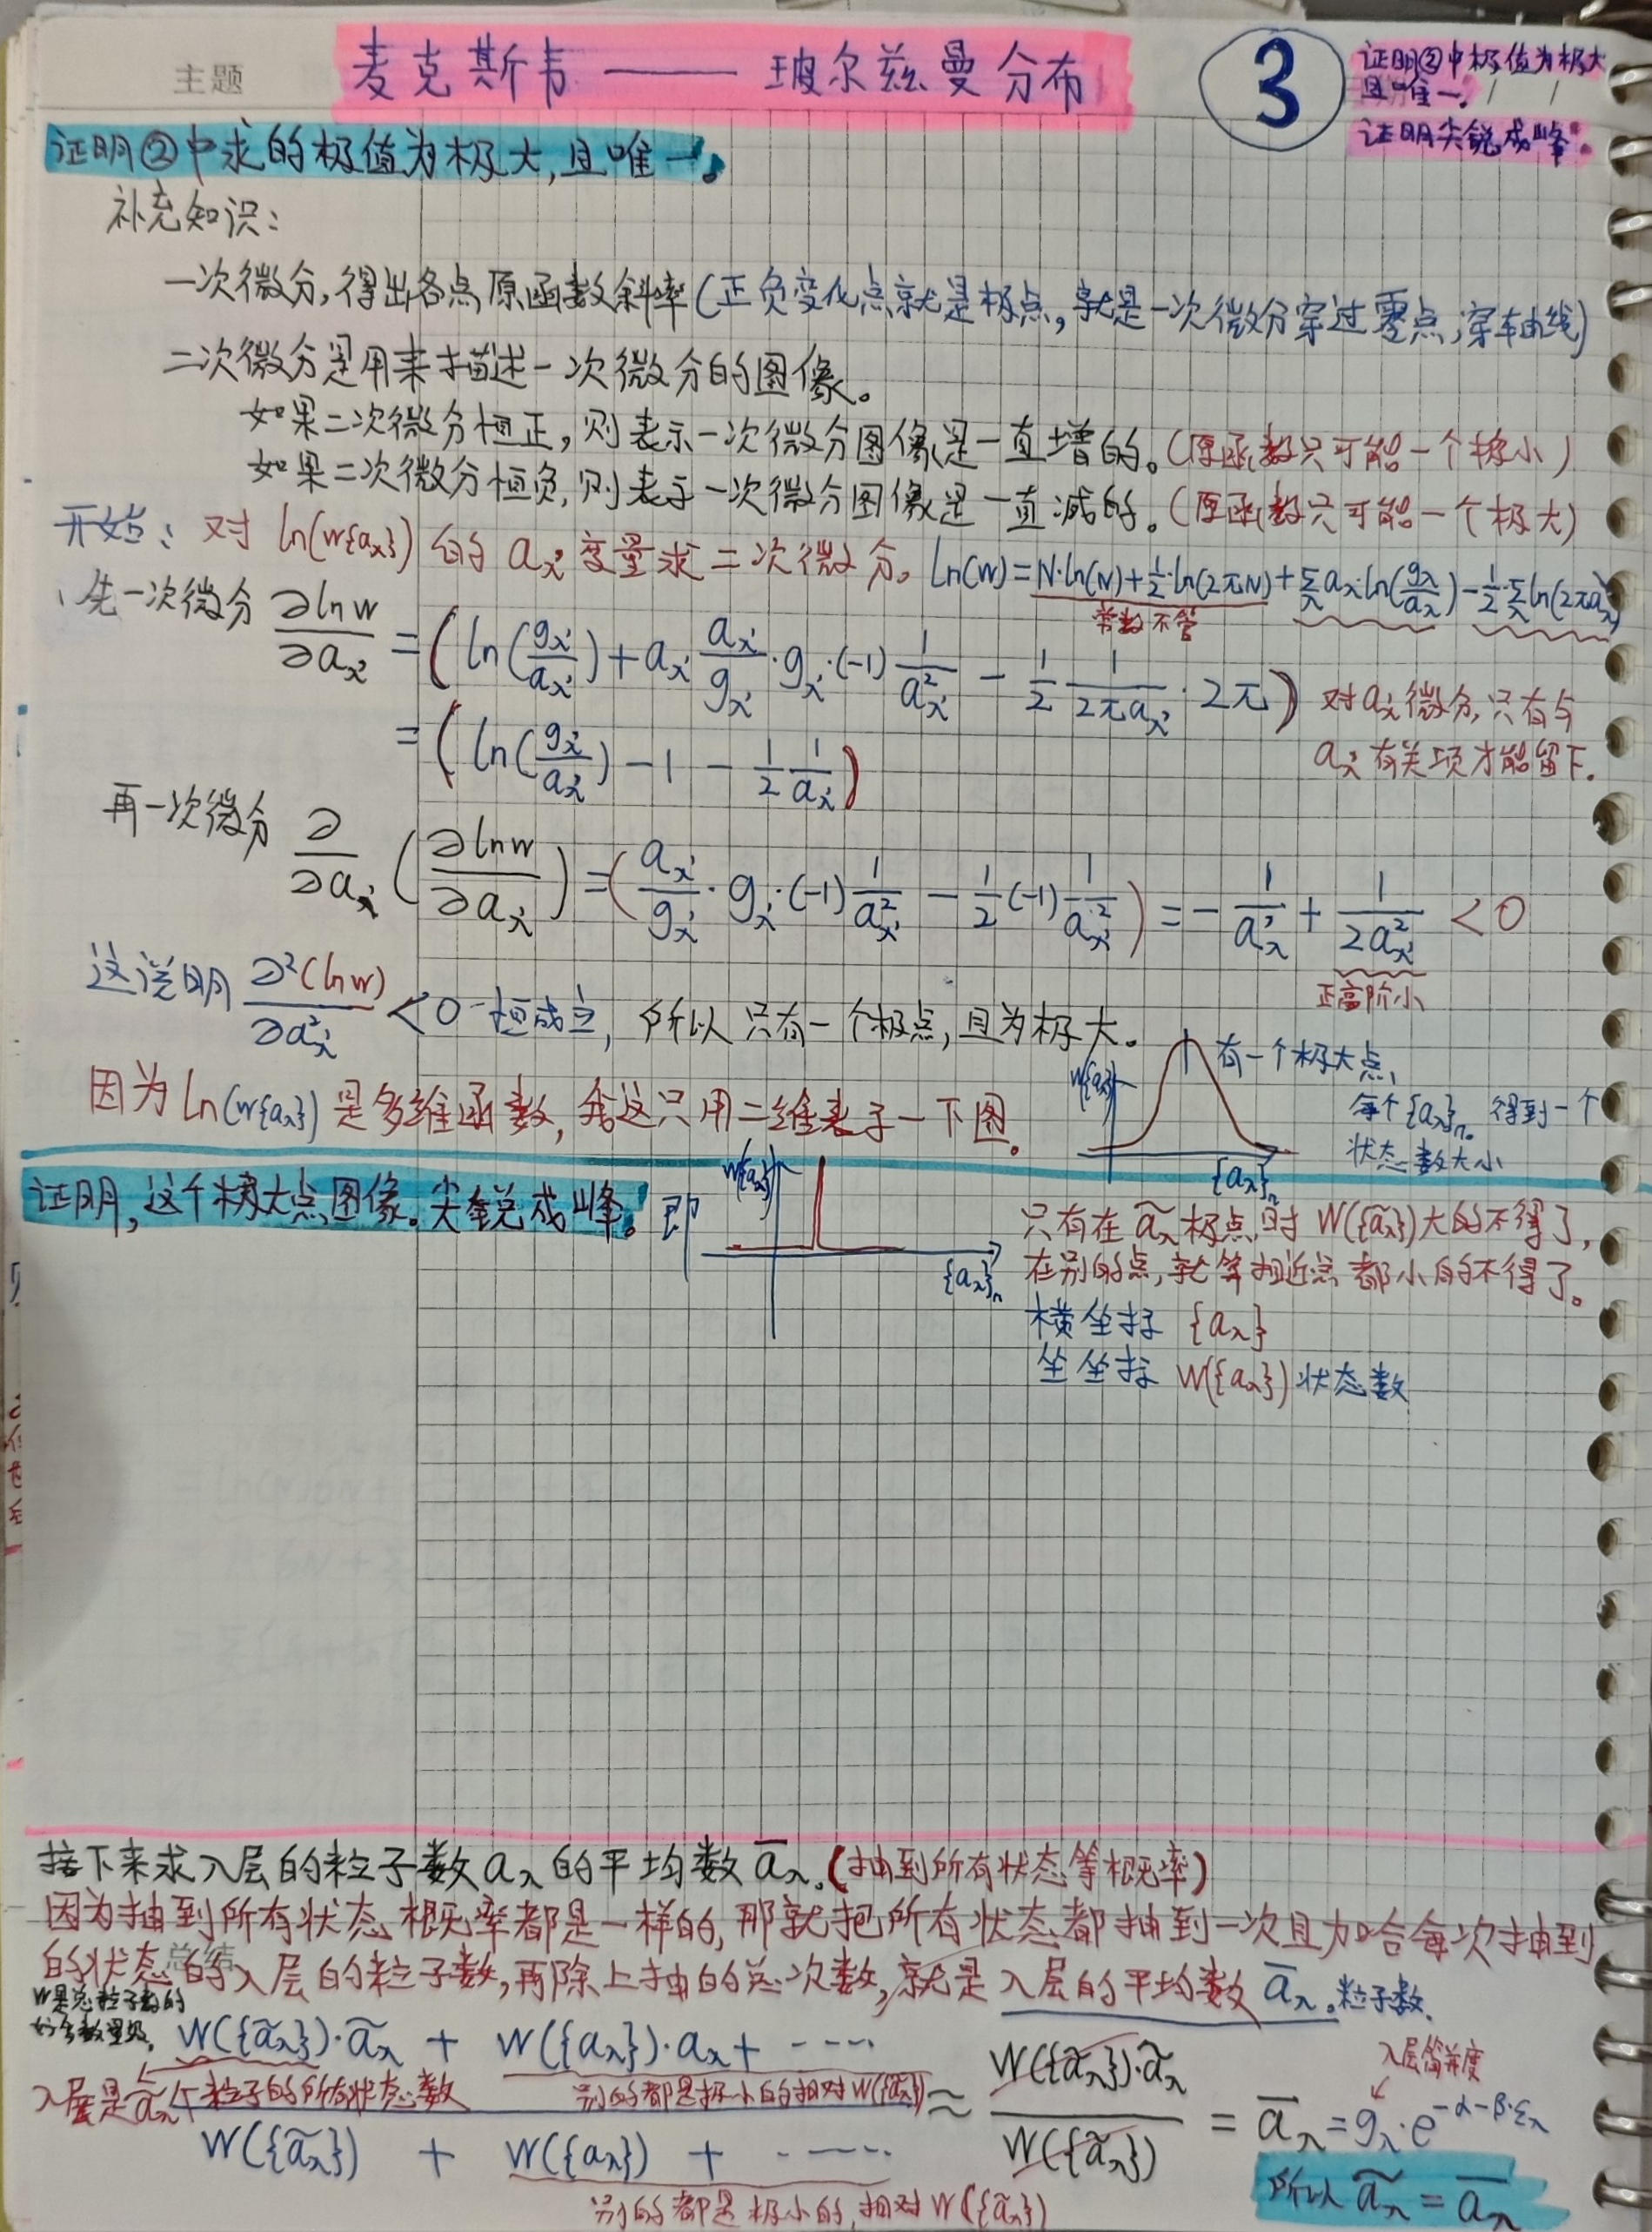 主题
麦克斯韦——玻尔兹曼分布
③
证明②中极值为极大
且唯一.
证明尖锐成峰.
证明②中求的极值为极大,且唯一。
补充知识:
一次微分,得出各点原函数斜率(正负变化点就是极点,就是一次微分穿过零点,穿轴线)
二次微分是用来描述一次微分的图像。
如果二次微分恒正,则表示一次微分图像是一直增的。(原函数只可能一个极小)
如果二次微分恒负,则表示一次微分图像是一直减的。(原函数只可能一个极大)
开始: 对 ln(w{aλ}) 的 aλ' 变量求二次微分。 ln(w)=N·ln(N)+½·ln(2πN)+∑λ aλ·ln(gλ/aλ)-½·∑λ ln(2πaλ)
常数不管
先一次微分 ∂lnw/∂aλ' = (ln(gλ'/aλ')+aλ' aλ'/gλ'·gλ'·(-1) 1/aλ'² - 1/2 1/2πaλ'·2π) 对aλ'微分,只有与
= (ln(gλ'/aλ')-1-1/2 1/aλ') aλ'有关项才能留下.
再一次微分 ∂/∂aλ' (∂lnw/∂aλ') = (aλ'/gλ'·gλ'·(-1) 1/aλ'² - 1/2(-1) 1/aλ'²) = -1/aλ' + 1/2aλ'² < 0
正高阶小
这说明 ∂²(lnw)/∂aλ'² < 0 恒成立, 所以只有一个极点,且为极大。
因为 ln(w{aλ}) 是多维函数, 我这只用二维表示一下图。
w{aλ}
有一个极大点,
每个{aλ}n。得到一个
状态数大小
{aλ}n
证明,这个极大点图像。尖锐成峰。即
w{aλ}
{aλ}n
只有在 ãλ 极点时 W({ãλ})大的不得了,
在别的点,就算相近点都小的不得了。
横坐标 {aλ}
坐坐标 W({aλ})状态数
接下来求λ层的粒子数aλ的平均数a̅λ.(抽到所有状态等概率)
因为抽到所有状态概率都是一样的,那就把所有状态都抽到一次且加哈每次抽到
的状态的λ层的粒子数,再除上抽的总次数,就是λ层的平均数 a̅λ。粒子数.
W是总粒子数的
好多数量级.
W({ãλ})·ãλ + W({aλ})·aλ+ ····
λ层是ãλ个粒子的所有状态数 别的都是极小的相对W({ãλ})
W({ãλ}) + W({aλ}) + ····
≈ W({ãλ})·ãλ / W({ãλ}) = a̅λ = gλ·e^(-α-β·ελ)
λ层简并度
别的都是极小的,相对W({ãλ})
所以 ãλ = a̅λ